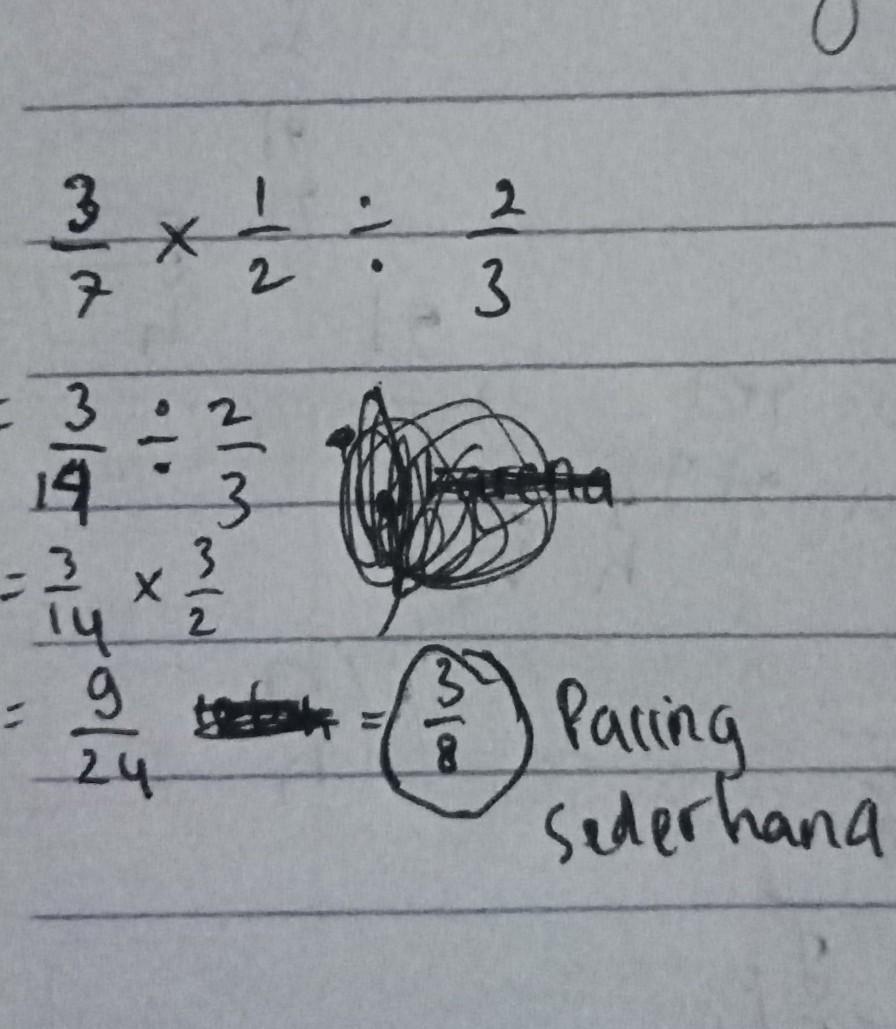 3/7 × 1/2 ÷ 2/3
= 3/14 ÷ 2/3
= 3/14 × 3/2
= 9/24 = 3/8 Paling
sederhana